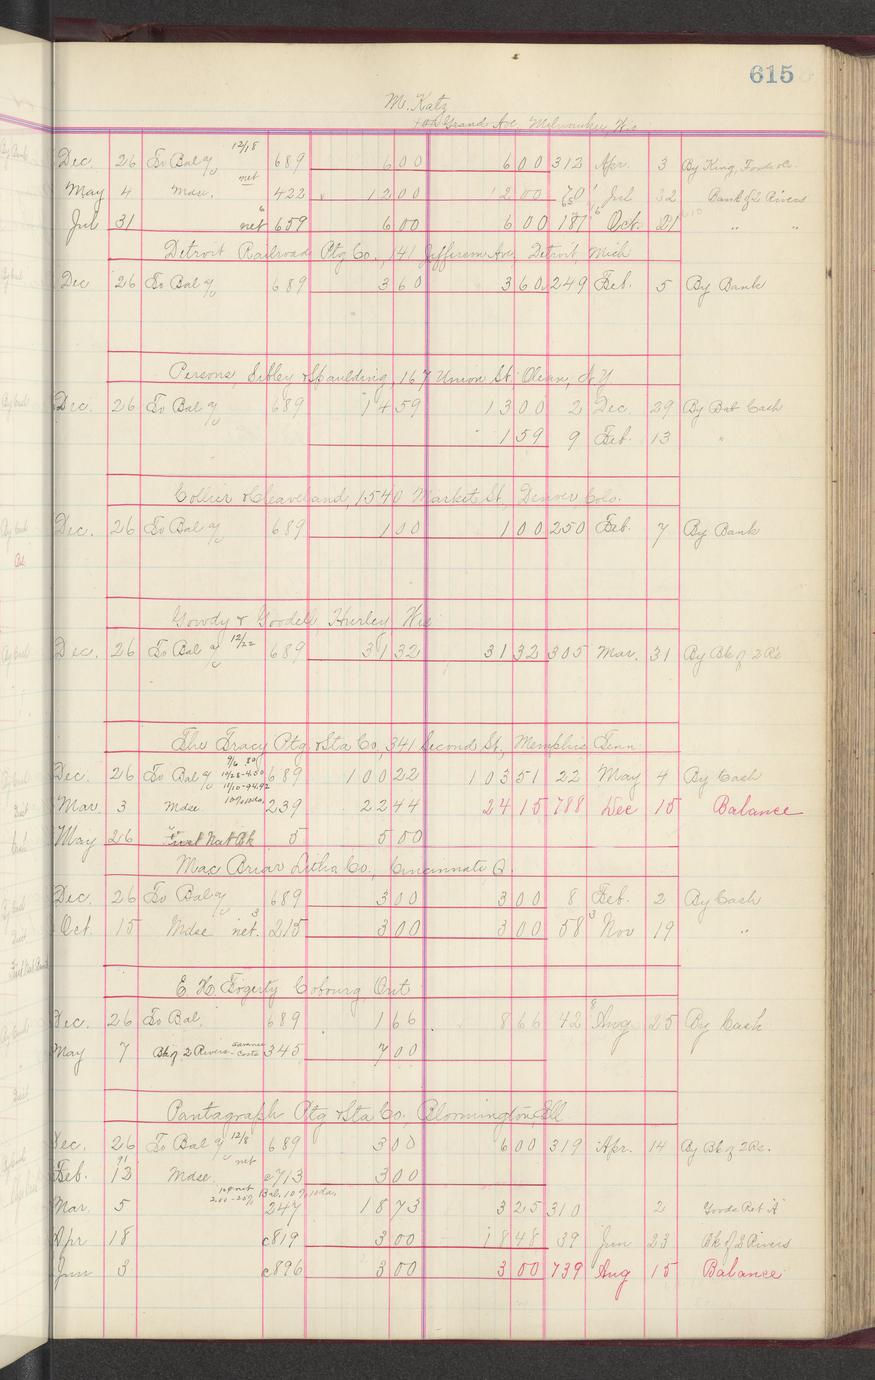 615
M. Katz
Grand Ave, Milwaukee, Wis
Dec. 26 To Bal 12/18 689 6 00 6 00 312 Apr. 3 By King,
May 4 Mdse. net 422 12 00 12 00 70 Jul Bank of 2 Rivers
Jul 31 net 659 6 00 6 00 187 Oct. 21 " "
Detroit Railroad Ptg Co., 141 Jefferson Ave, Detroit, Mich
Dec 26 To Bal 689 3 60 3 60 249 Feb. 5 By Bank
Persons, Sibley & Spaulding, 167 Union St. Olean, N.Y.
Dec. 26 To Bal 689 14 59 13 00 2 Dec. 29 By Bal Cash
1 59 9 Feb. 13 "
Collier & Cleaveland, 1540 Market St, Denver Colo.
Dec. 26 To Bal 689 1 00 1 00 250 Feb. 7 By Bank
Gowdy & Goodell, Hurley, Wis
Dec. 26 To Bal 12/22 689 31 32 31 32 305 Mar. 31 By Bk of 2 Rs
The Tracy Ptg & Sta Co, 341 Second St, Memphis Tenn
Dec. 26 To Bal 10/28-4.50 11/10-94.92 689 100 22 103 51 22 May 4 By Cash
Mar. 3 Mdse 10% 10 das. 239 22 44 24 15 788 Dec 15 Balance
May 26 First Nat Bk 5 5 00
Mac Briar Litho Co., Cincinnati O.
Dec 26 To Bal 689 3 00 3 00 8 Feb. 2 By Cash
Oct. 15 Mdse net. 3 215 3 00 3 00 58 3 Nov 19 "
E. H. Fogerty Cobourg Ont
Dec. 26 To Bal. 689 1 66 8 66 42 8 Aug 25 By Cash
May 7 Bk of 2 Rivers 345 7 00
Pantagraph Ptg & Sta Co, Bloomington, Ill
Dec. 26 To Bal 12/8 689 3 00 6 00 319 Apr. 14 By Bk of 2 Rs.
Feb. 12 Mdse net c713 3 00
Mar 5 Bal. 10% 10 das 247 18 73 3 25 310 2 Goods Ret "A"
Apr 18 c819 3 00 18 48 39 Jun 23 Bk of 2 Rivers
Jun 3 c896 3 00 3 00 739 Aug 15 Balance